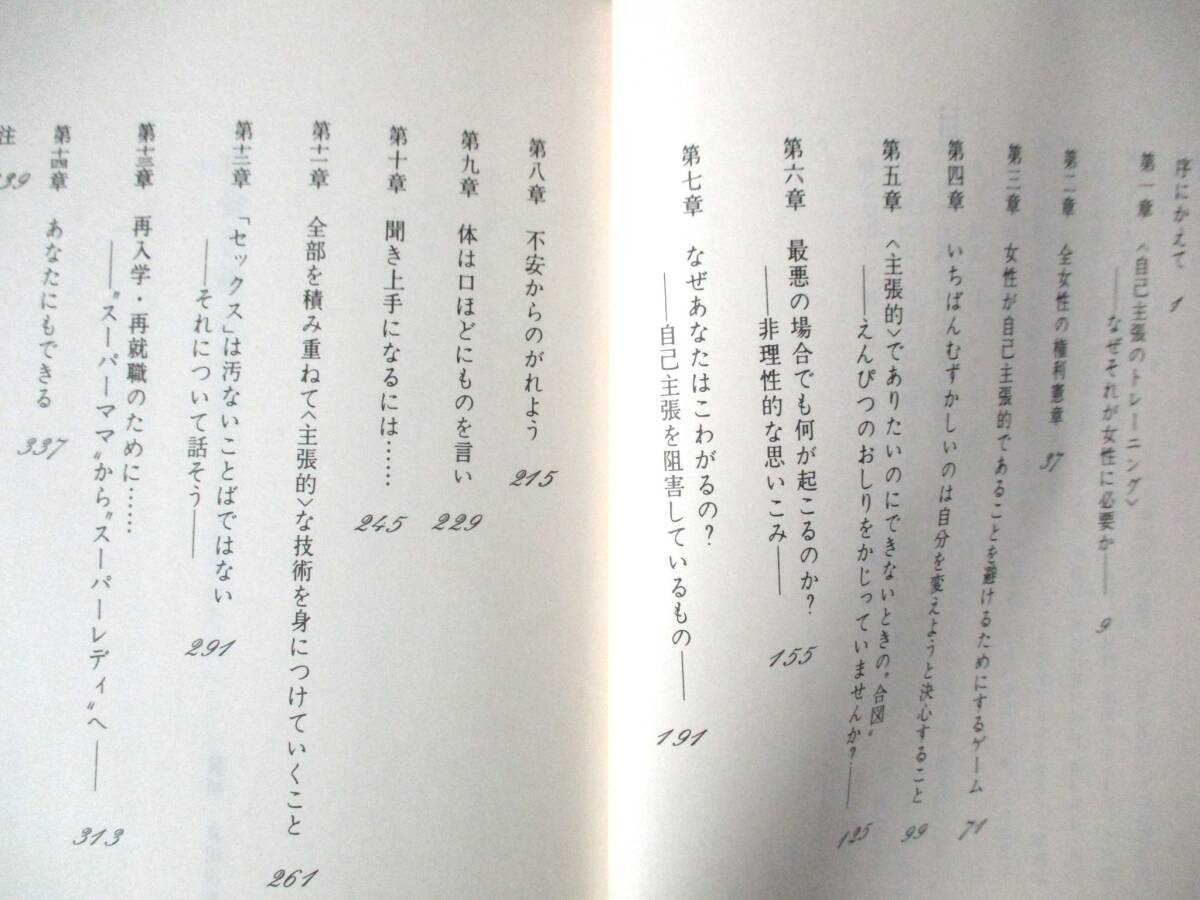 序にかえて 1
第一章 〈自己主張のトレーニング〉
――なぜそれが女性に必要か―― 9
第二章 全女性の権利憲章 37
第三章 女性が自己主張的であることを避けるためにするゲーム 71
第四章 いちばんむずかしいのは自分を変えようと決心すること 99
第五章 〈主張的〉でありたいのにできないときの〝合図〟
――えんぴつのおしりをかじっていませんか?―― 125
第六章 最悪の場合でも何が起こるのか?
――非理性的な思いこみ―― 155
第七章 なぜあなたはこわがるの?
――自己主張を阻害しているもの―― 191
第八章 不安からのがれよう 215
第九章 体は口ほどにものを言い 229
第十章 聞き上手になるには…… 245
第十一章 全部を積み重ねて〈主張的〉な技術を身につけていくこと 261
第十二章 「セックス」は汚ないことばではない
――それについて話そう―― 291
第十三章 再入学・再就職のために……
――〝スーパーママ〟から〝スーパーレディ〟へ―― 313
第十四章 あなたにもできる 337
注 339